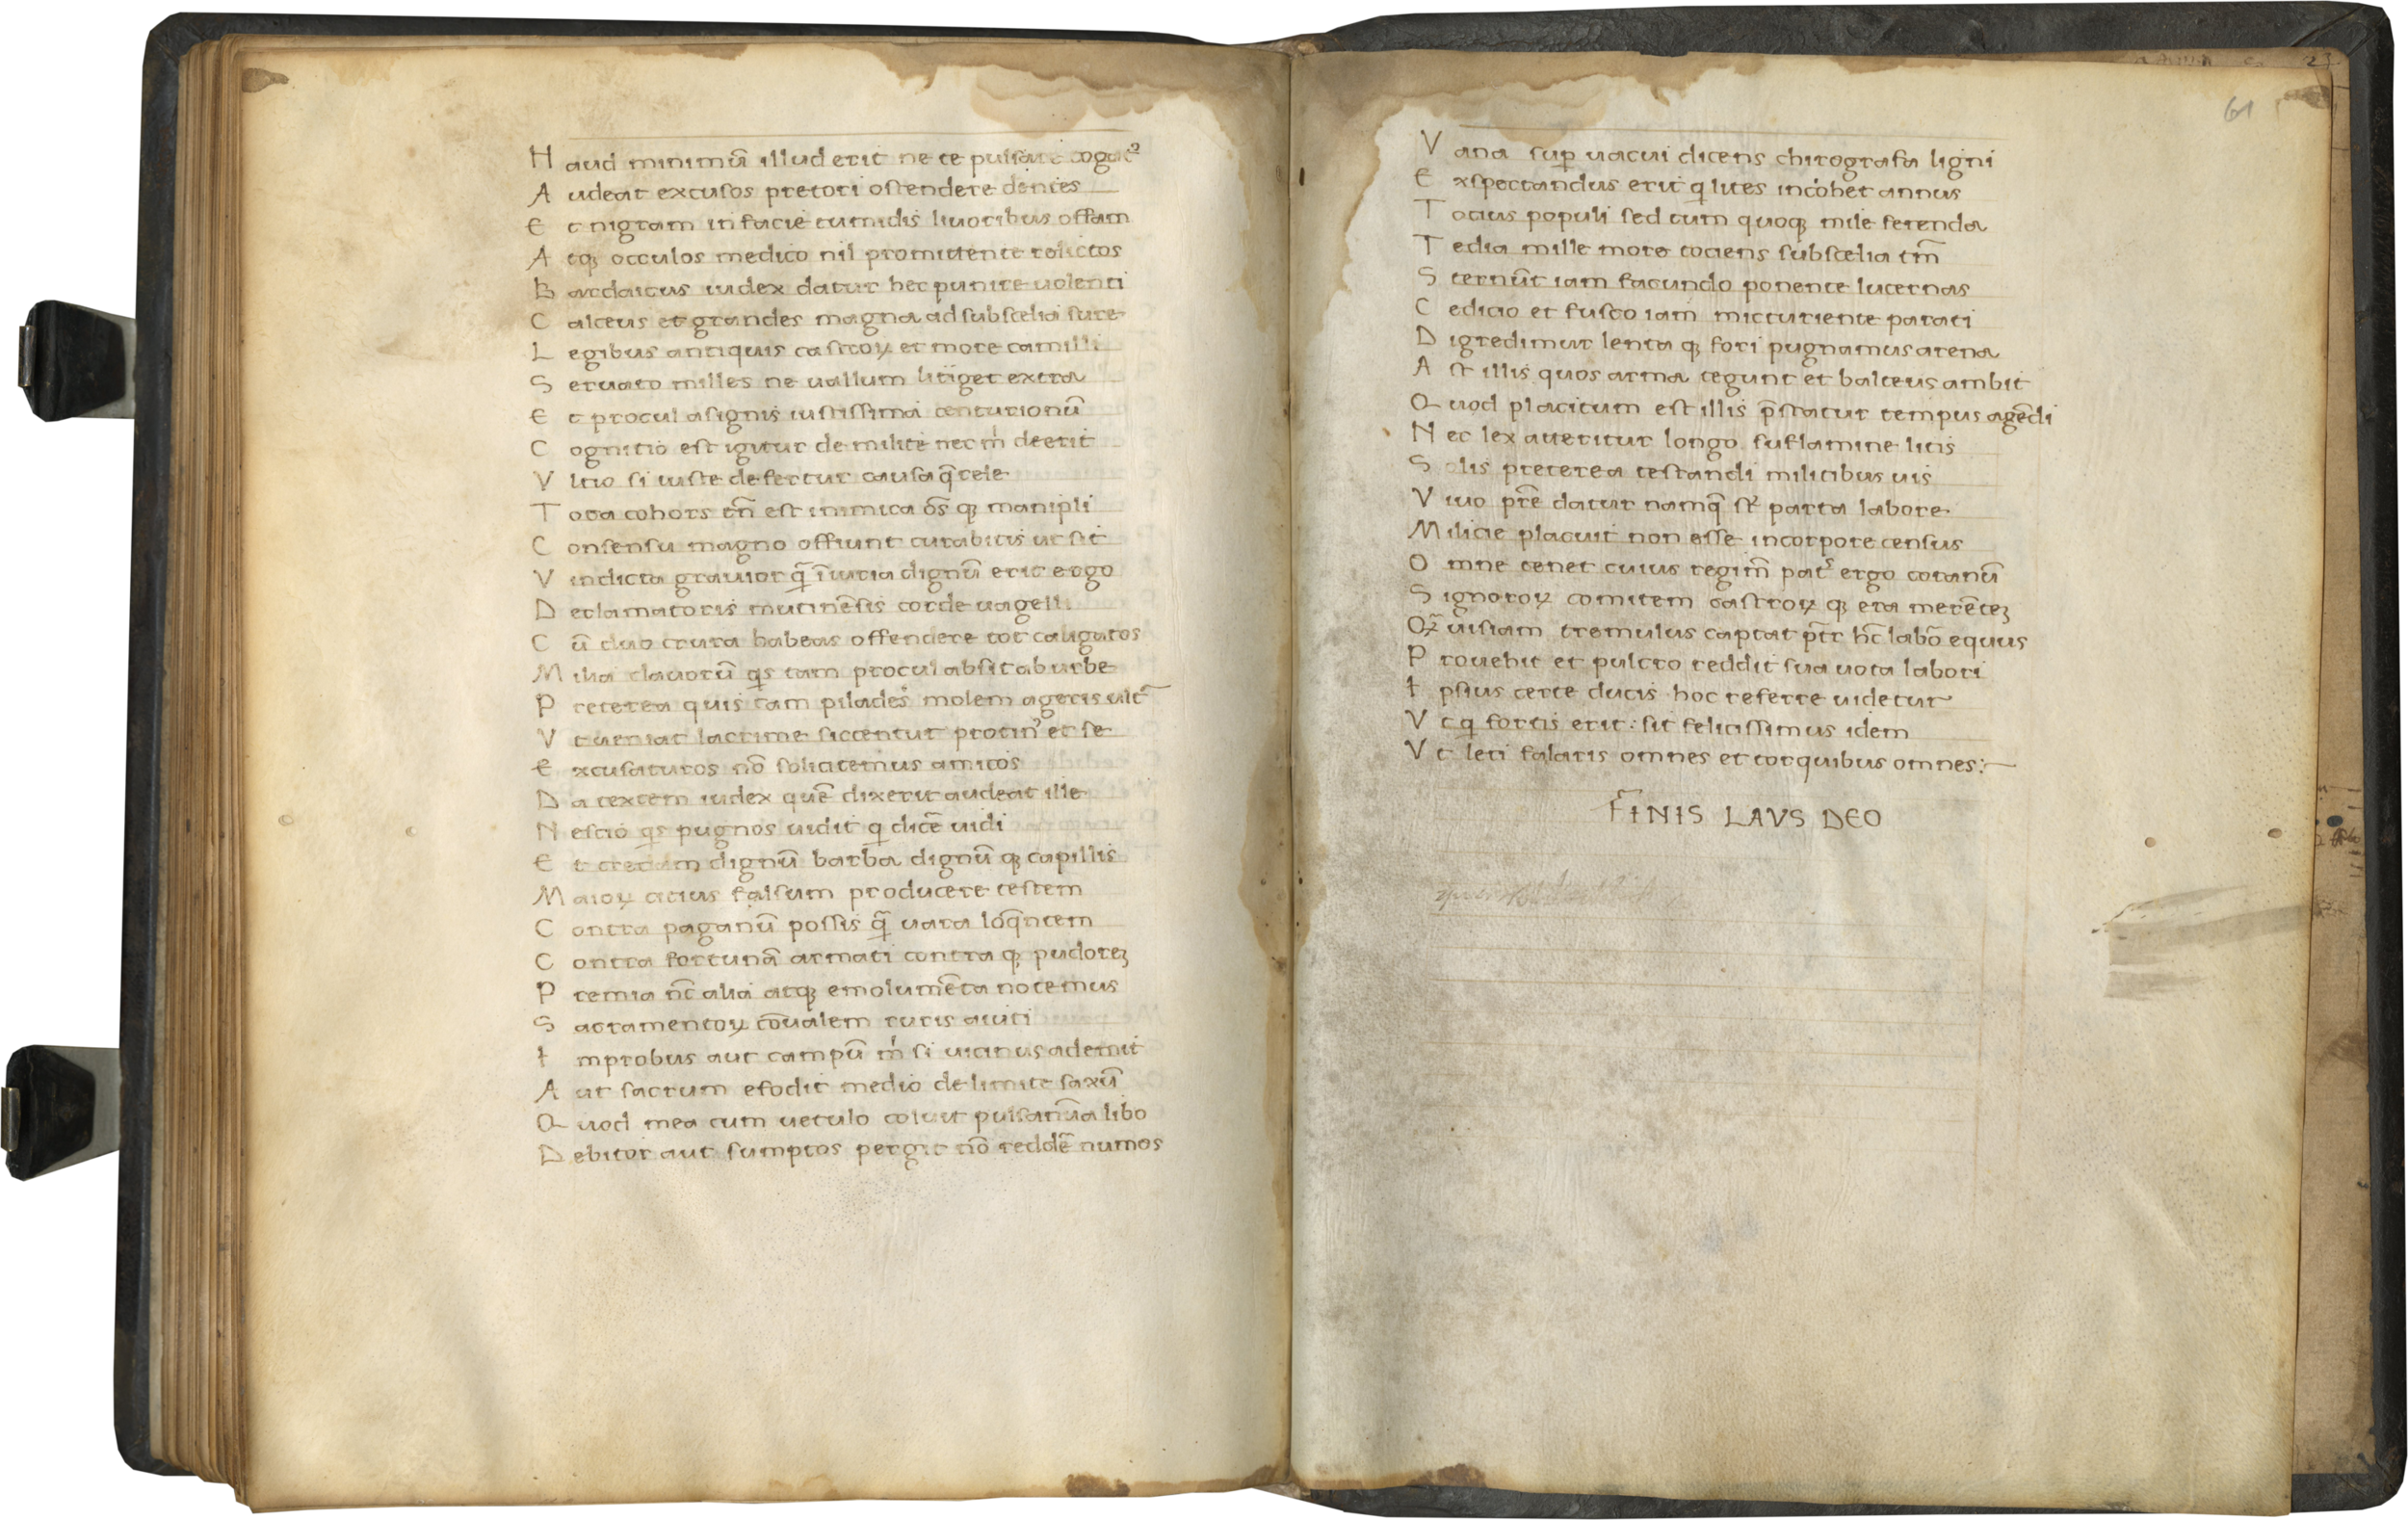 Haud minimū illud erit ne te pulsare togatꝰ
Audeat excusos pretori ostendere dentes
Et nigram in facie tumidis liuoribus offam
Atqꝫ occulos medico nil promittente relictos
Bardaicus iudex datur hec punire uolenti
Calceus et grandes magna ad subscelia sure
Legibus antiquis castroꝝ et more camilli
Seruato milles ne uallum litiget extra
Et procul a signis iustissima centurionū
Cognitio est igitur de milite nec m̍ deerit
Vltio si iuste defertur causa q̄rele
Tota cohors tn̄ est inimica oēs qꝫ manipli
Consensu magno offiunt curabitis ut sit
Vindicta grauior q̄ īiuria dignū erit ergo
Declamatoris mutinēsis corde uagelli
Cū duo crura habeas offendere tot caligatos
Milia clauorū qis tam procul absit ab urbe
Preterea quis tam pilades molem ageris ult̄
Vt ueniat lacrime siccentur protinꝰ et se
Excusaturos nō solicitemus amicos
Da textem iudex quē dixerit audeat ille
Nescio qis pugnos uidit q dicē uidi
Et credam dignū barba dignū qꝫ capillis
Maioꝝ citius falsum producere testem
Contra paganū possis q̄ uara loq̄ntem
Contra fortunā armati contra qꝫ pudoreꝫ
Premia nc̄ alia atqꝫ emolumēta notemus
Sacramentoꝝ cōualem ruris auiti
Improbus aut campū m̍ si uicinus ademit
Aut sacrum efodit medio de limite saxū
Quod mea cum uetulo coluit puls anūa libo
Debitor aut sumptos pergit nō reddē numos
61
Vana suꝑ uacui dicens chirografa ligni
Exspectandus erit q lites incohet annus
Totius populi sed tum quoqꝫ mile ferenda
Tedia mille more tociens subscelia tm̄
Sternūt iam facundo ponente lucernas
Cedicio et fusco iam micturiente parati
Digredimur lenta qꝫ fori pugnamus arena
Ast illis quos arma tegunt et balteus ambit
Quod placitum est illis p̄statur tempus agēdi
Nec lex aueritur longo suflamine litis
Solis preterea testandi militibus uis
Viuo pr̄e datur namq̄ st̄ parta labore
Milicie placuit non esse in corpore census
Omne tenet cuius regim̄ pat̄ ergo coranū
Signoroꝝ comitem castroꝝ qꝫ era merēteꝫ
Qꝫuisiam tremulus captat pr̄ hc̄ labō equus
Prouehit et pulcro reddit sua uota labori
Ipsius certe ducis hoc referre uidetur
Vt q fortis erit: sit felicissimus idem
Vt leti falaris omnes et torquibus omnes:
FINIS LAVS DEO